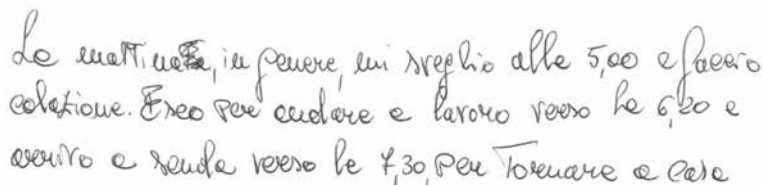 La mattina, in genere, mi sveglio alle 5,00 e faccio
colazione. Esco per andare a lavoro verso le 6,20 e
arrivo a scuola verso le 7,30, per tornare a casa